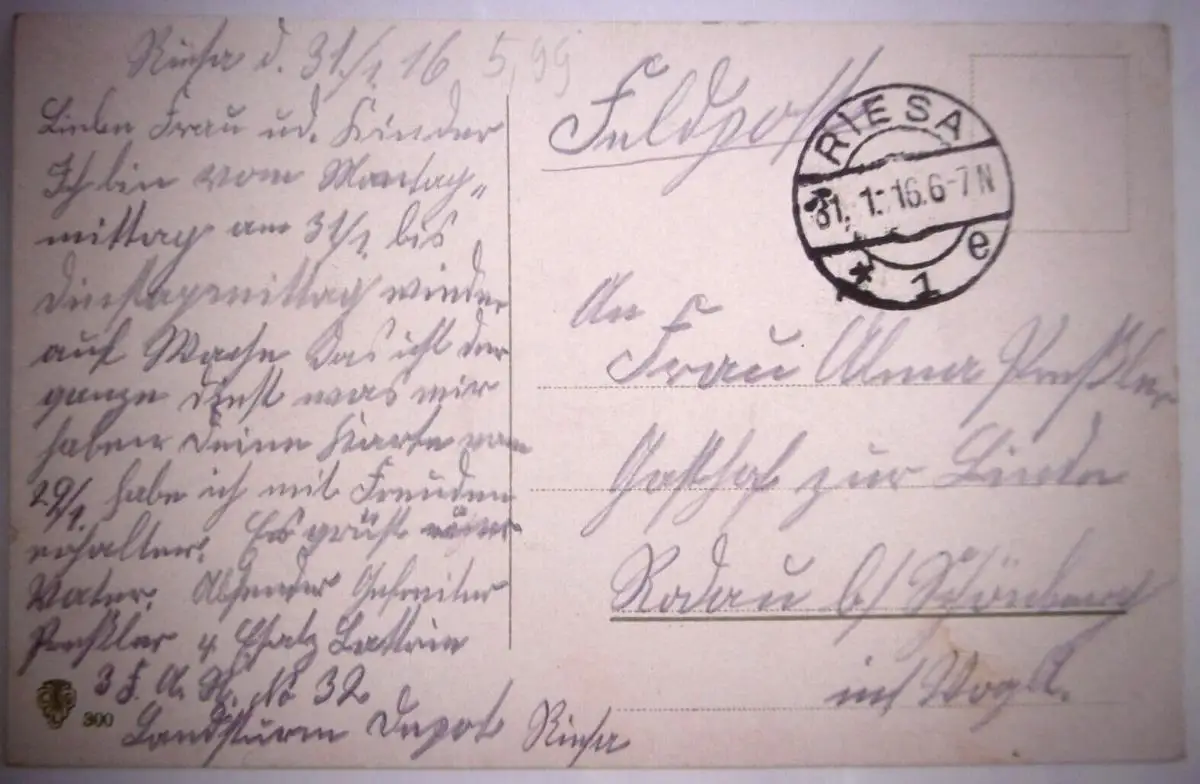 Riesa d. 31/1 16
5,99
Liebe Frau ud. Kinder
Ich bin vom Montag„
mittag am 31/1 bis
Dinstagsmittag wieder
auf Wache Das ist der
ganze Dinst was wir
haben Deine Karte vom
29/1. habe ich mit Freuden
erhalten. Es grüßt eüer
Vater. Absender Gefreiter
Ersatz Battrie
3 F. A. R. No 32
Landsturm Depot Riesa
300
Feldpost
RIESA
31. 1. 16. 6-7 N
* 1 e
An
Frau Alma
Gasthof zur Linde
Rodau b/ Schönberg
in/ Vogtl.